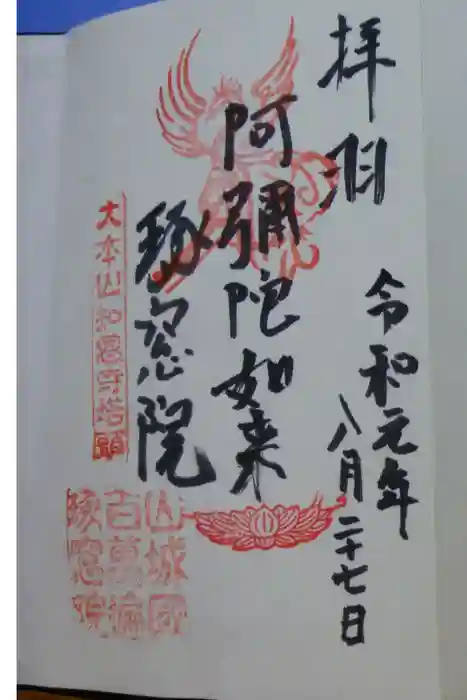 拝
令和元年
八月二十七日
阿彌陀如来
瑞窓院
大本山知恩寺塔頭
山城國
百萬遍
瑞窓院